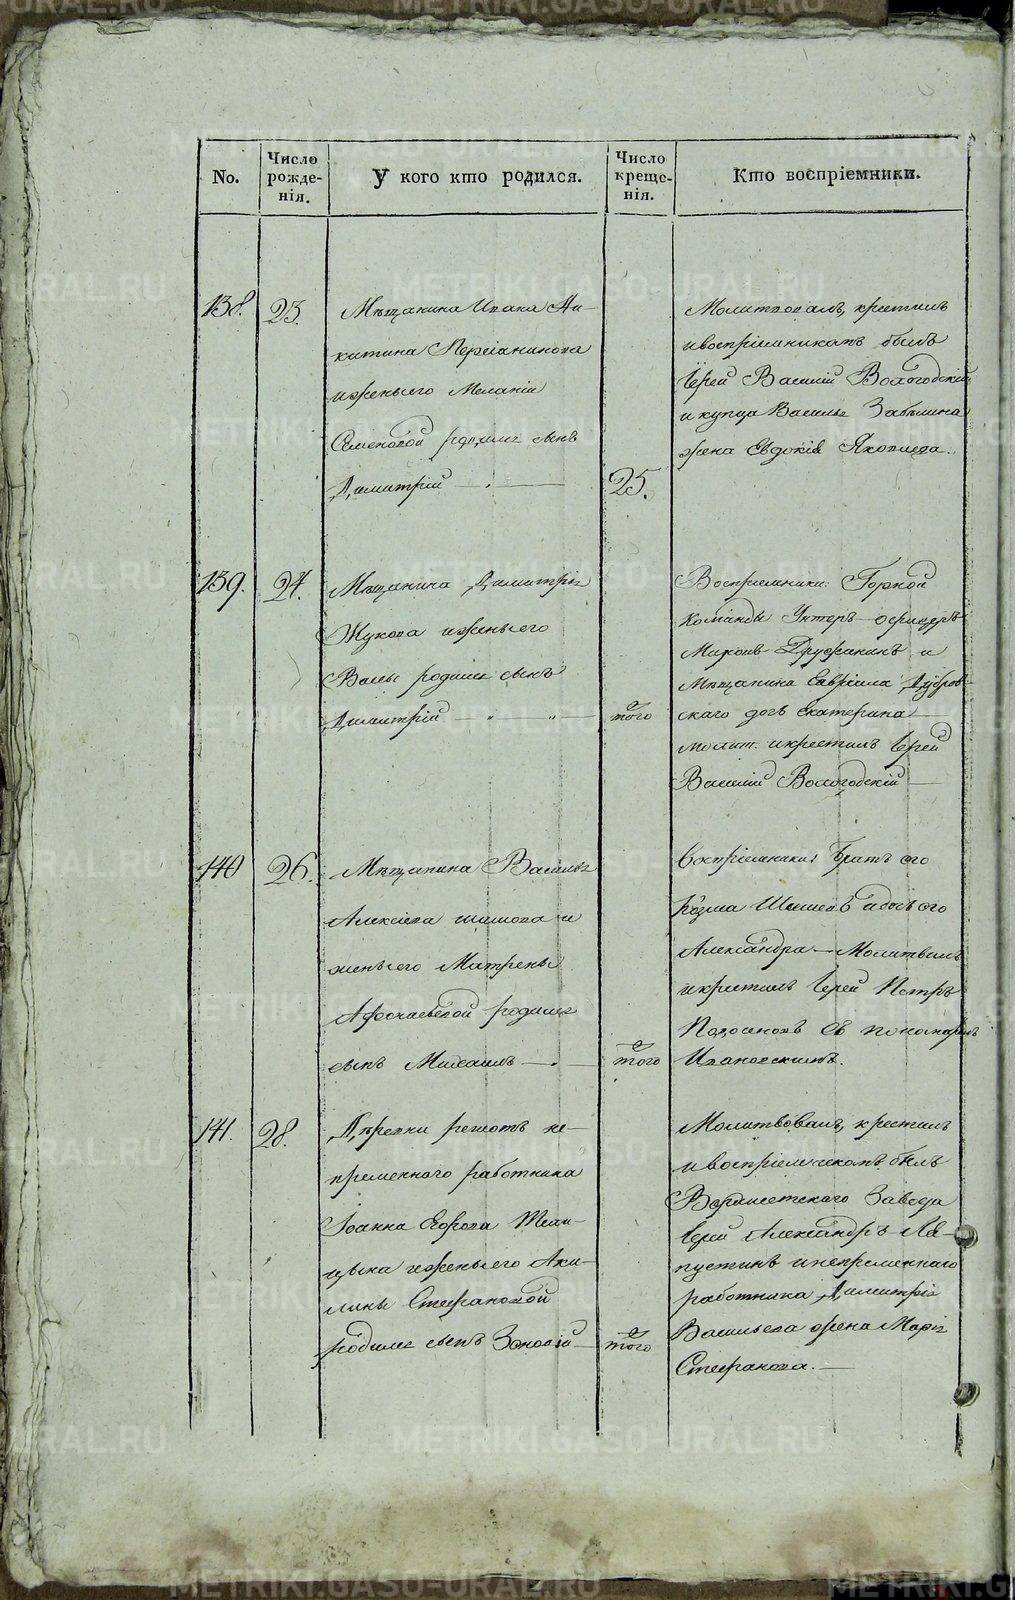 No.
Число рожде-нія.
У кого кто родился.
Число креще-нія.
Кто воспріемники.
138.
23.
Мѣщанина Ивана Ни-
китина Персіанинова
и жены его Меланіи
Семеновой родился сынъ
Димитрій
25.
Молитвовалъ, крестилъ
и воспріемникомъ былъ
Іерей Василій Вологодскій
и купца Василья Забѣлина
жена Евдокія Яковлева.
139.
24.
Мѣщанина Димитрія
Жукова и жены его
родился сынъ
Димитрій
того
Воспріемники: Горной
Команды Унтеръ-офицеръ
Дружининъ и
Мѣщанина Гавріила Дубров-
скаго дочь Екатерина
молит. и крестилъ Іерей
Василій Вологодскій
140
26.
Мѣщанина Василья
Алексѣева и
жены его Матрены
родился
сынъ Михаилъ
того
Воспріемники: Братъ его
Козма и дочь его
Александра — Молитвилъ
и крестилъ Іерей Петръ
съ пономаремъ
Ивановскимъ.
141.
28.
Деревни Решетъ не-
премѣннаго работника
Іоанна Егорова
и жены его Аки-
лины Стефановой
родился сынъ Зоновій
того
Молитвовалъ, крестилъ
и воспріемникомъ былъ
Верхисетскаго Завода
Іерей Александръ Ла-
пустинъ и непремѣннаго
работника Димитрія
Васильева жена Марія
Стефанова.
METRIKI.GASO-URAL.RU